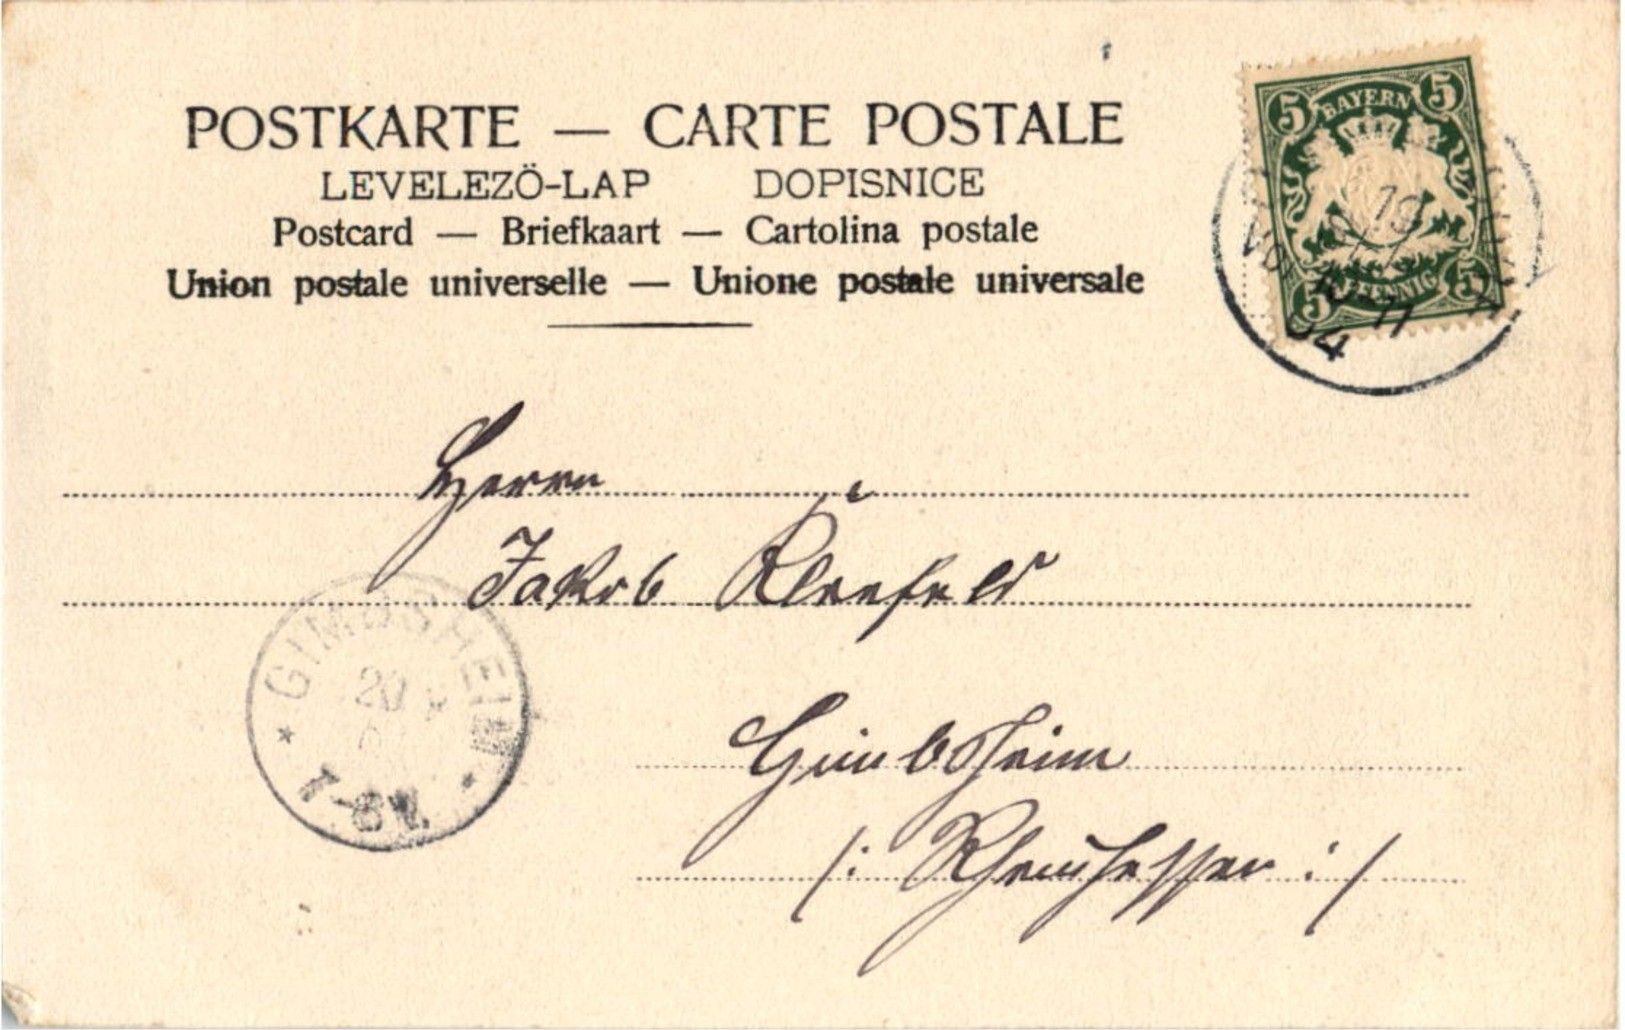 POSTKARTE — CARTE POSTALE
LEVELEZŐ-LAP DOPISNICE
Postcard — Briefkaart — Cartolina postale
Union postale universelle — Unione postale universale
5 BAYERN 5
5 PFENNIG 5
19
04
Herrn
Jakob Kleefeld
GIMBSHEIM
20
7-8V.
Gimbsheim
/: Rheinhessen :/